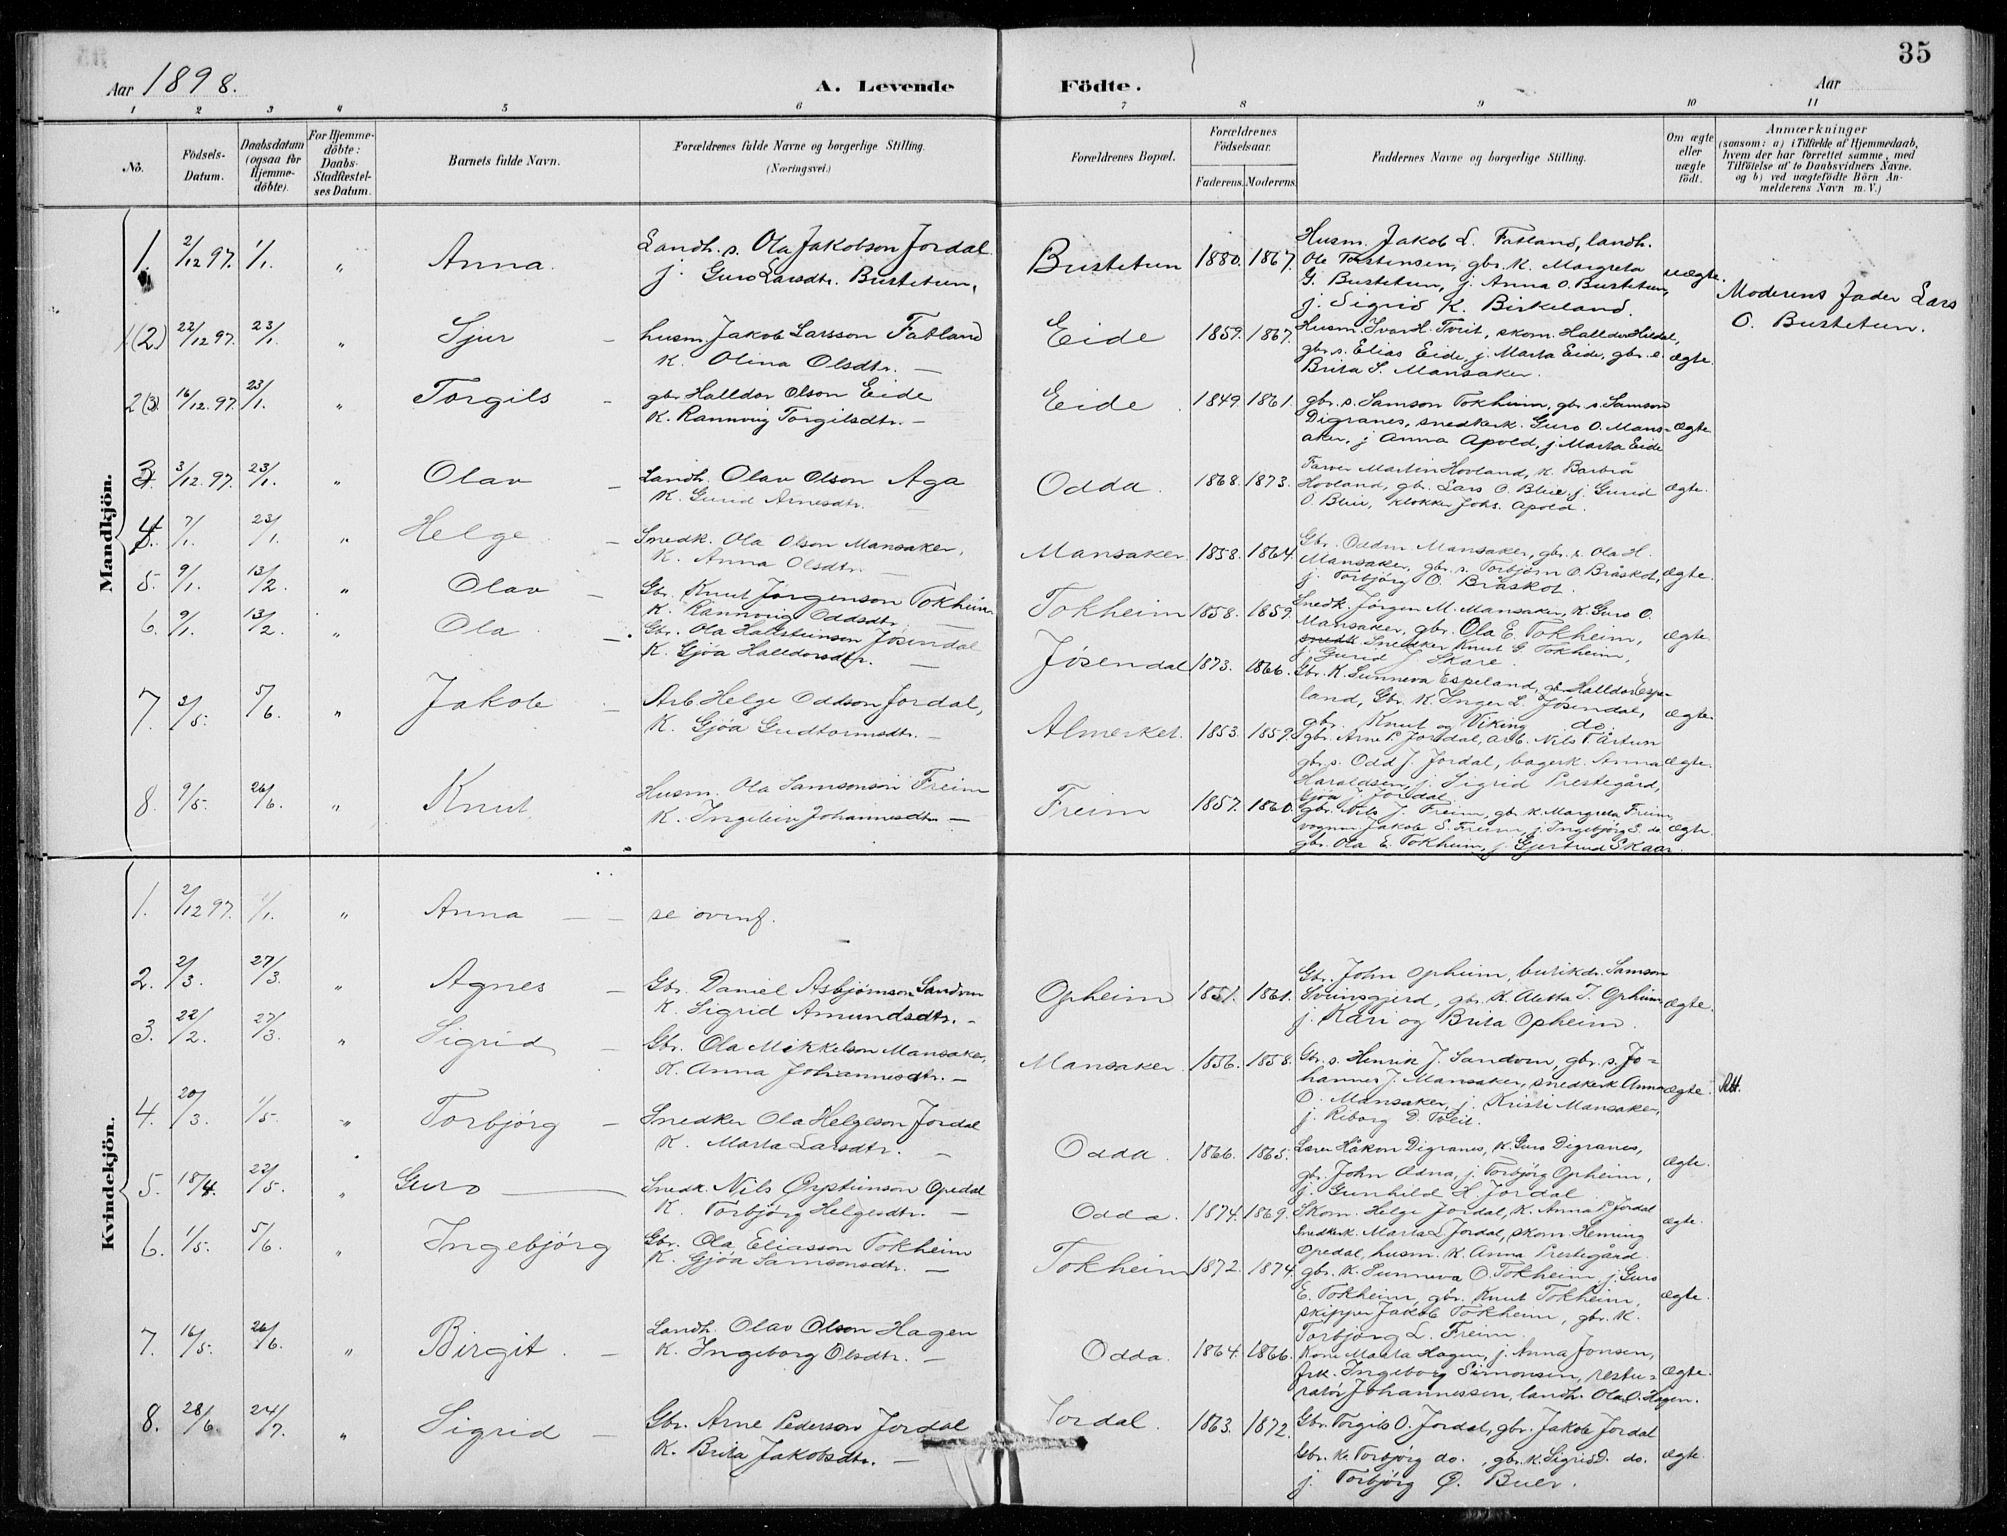 35
Aar 1898.
A. Levende Födte.
Aar
1 2 3 4 5 6 7 8 9 10 11
No.
Födsels-Datum.
Daabsdatum (ogsaa for Hjemmedöbte).
For Hjemmedöbte: Daabs-Stadfæstelses Datum.
Barnets fulde Navn.
Forældrenes fulde Navne og borgerlige Stilling. (Næringsvei.)
Forældrenes Bopæl.
Forældrenes Födselsaar.
Faderens. Moderens.
Faddernes Navne og borgerlige Stilling.
Om ægte eller uægte födt.
Anmærkninger
(saasom: a) i Tilfælde af Hjemmedaab, hvem der har forrettet samme, med Tilföielse af to Daabsvidners Navne. og b) ved uægtefödte Börn Anmelderens Navn m. V.)
Mandkjön.
1. 2/12 97. 1/1. " Anna.
Landh. s. Ola Jakobson Jordal
j. Guro Larsdtr. Bustetun.
Bustetun 1880. 1867.
Husm. Jakob L. Fatland, landh.
Ole Torstensen, gbr. k. Margreta
G. Bustetun, j. Anna O. Bustetun,
j. Sigrid K. Birkeland.
uægte.
Moderens Fader Lars
O. Bustetun.
1(2) 22/12 97. 23/1. " Sjur
husm. Jakob Larsson Fatland
K. Olina Olsdtr.
Eide 1859. 1867.
Husm. Ivar H. Tveit, skom. Halldor Hildal,
gbr. s. Elias Eide, j. Marta Eide, gbr. e.
Brita S. Mansaker.
ægte.
2(3) 16/12. 97. 23/1. " Torgils
gbr. Halldor Olson Eide
K. Rannvig Torgilsdtr.
Eide 1849. 1861.
gbr. s. Samson Tokheim, gbr. s. Samson
Digranes, snedkerk. Guro O. Mans-
aker, j. Anna Apold, j. Marta Eide
ægte.
3 3/12. 97. 23/1. " Olav
Landh. Olav Olson Aga
K. Gurid Arnesdtr.
Odda. 1868. 1873.
Farver Martin Hovland, K. Barbrå
Hovland, gbr. Lars O. Bleie, j. Gurid
O. Bleie, klokker Johs. Apold.
ægte.
4. 7/1. 23/1. " Helge
Snedk. Ola Olson Mansaker,
K. Anna Olsdtr.
Mansaker. 1858. 1864.
Gbr. Oddm Mansaker, gbr. s. Ola H.
Mansaker, gbr. s. Torbjörn O. Bråskot,
j. Torbjörg O. Bråskot.
ægte.
5. 9/1. 13/2. " Olav
Gbr. Knut Jörgenson Tokheim
K. Rannvig Oddsdtr.
Tokheim 1858. 1859.
Snedk. Jörgen M. Mansaker, K. Guro O.
Mansaker, gbr. Ola E. Tokheim,
snedk Snedker Knut G. Tokheim,
j. Gurid J. Skare.
ægte.
6. 9/1. 13/2. " Ola
Gbr. Ola Hallsteinson Jösendal
K. Gjöa Halldorsdtr.
Jösendal 1873. 1866.
Gbr. K. Sunneva Espeland, gbr. Halldor Espe-
land, Gbr. K. Inger L. Jösendal,
gbr. Knut og Viking do.
ægte.
7. 3/5. 5/6. " Jakob
Arb. Helge Oddson Jordal,
K. Gjöa Gudtormsdtr.
Almerket. 1853. 1859.
gbr. Arne P. Jordal, arb. Nils T. Årtun
gbr. s. Odd J. Jordal, bagerk. Anna
Haraldsen, j. Sigrid Prestegård,
Gjöa J. Jordal
ægte.
8. 9/5. 26/6. " Knut
Husm. Ola Samsonson Freim
K. Ingebein Johannesdtr.
Freim 1857. 1860.
gbr. Nils J. Freim, gbr. k. Margreta Freim,
vognm. Jakob S. Freim, j. Ingebjörg S. do.
gbr. Ola E. Tokheim, j. Gjertrud Skaar.
ægte.
Kvindekjön.
1. 2/12 97. 1/1. " Anna
se ovenf.
2. 2/3. 27/3. " Agnes
Gbr. Daniel Asbjörnson Sandven
K. Sigrid Amundsdtr.
Opheim 1851. 1861.
Gbr. John Opheim, butikdr. Samson
Sveinsgjerd, gbr. K. Aletta T. Opheim
j. Kari og Brita Opheim.
ægte.
3. 22/2. 27/3. " Sigrid
Gbr. Ola Mikkelson Mansaker,
K. Anna Johannesdtr.
Mansaker. 1856. 1858.
Gbr. s. Henrik J. Sandven, gbr. s. Jo-
hannes J. Mansaker, snedkerk Anna
O. Mansaker, j. Kristi Mansaker,
j. Reborg D. Tveit.
ægte.
Att.
4. 20/3. 1/5. " Torbjörg
Snedker Ola Helgeson Jordal
K. Marta Larsdtr.
Odda. 1866. 1865.
Lærer Håkon Digranes, K. Guro Digranes,
gbr. John Ædna, j. Torbjörg Opheim,
j. Gunhild H. Jordal
ægte.
5. 18/4. 22/5. " Guro
Snedk. Nils Örpsteinson Opedal
K. Torbjörg Helgesdtr.
Odda. 1874. 1869.
Skom. Helge Jordal, K. Anna P. Jordal
Snedkerk. Marta L. Jordal, skom Heming
Opedal, husm. K. Anna Prestegård.
ægte.
6. 1/5. 5/6. " Ingebjörg
Gbr. Ola Eliasson Tokheim
K. Gjöa Samsonsdtr.
Tokheim 1872. 1874.
gbr. K. Sunneva O. Tokheim, j. Guro
E. Tokheim, gbr. Knut Tokheim,
skipper Jakob Tokheim, gbr. K.
Torbjörg L. Freim.
ægte.
7. 16/5. 26/6. " Birgit.
Landh. Olav Olson Hagen
K. Ingeborg Olsdtr.
Odda. 1864. 1866.
Kone Marta Hagen, j. Anna Jonsen,
frk. Ingeborg Simonsen, restu-
ratör Johannessen, landh. Ola O. Hagen.
ægte.
8. 28/6 24/7. " Sigrid
Gbr. Arne Pederson Jordal
K. Brita Jakobsdtr.
Jordal. 1863. 1872.
Gbr. Torgils O. Jordal, gbr. Jakob Jordal
Gbr. K. Torbjörg do., gbr. K. Sigrid D. do.
j. Torbjörg O. Buer.
ægte.